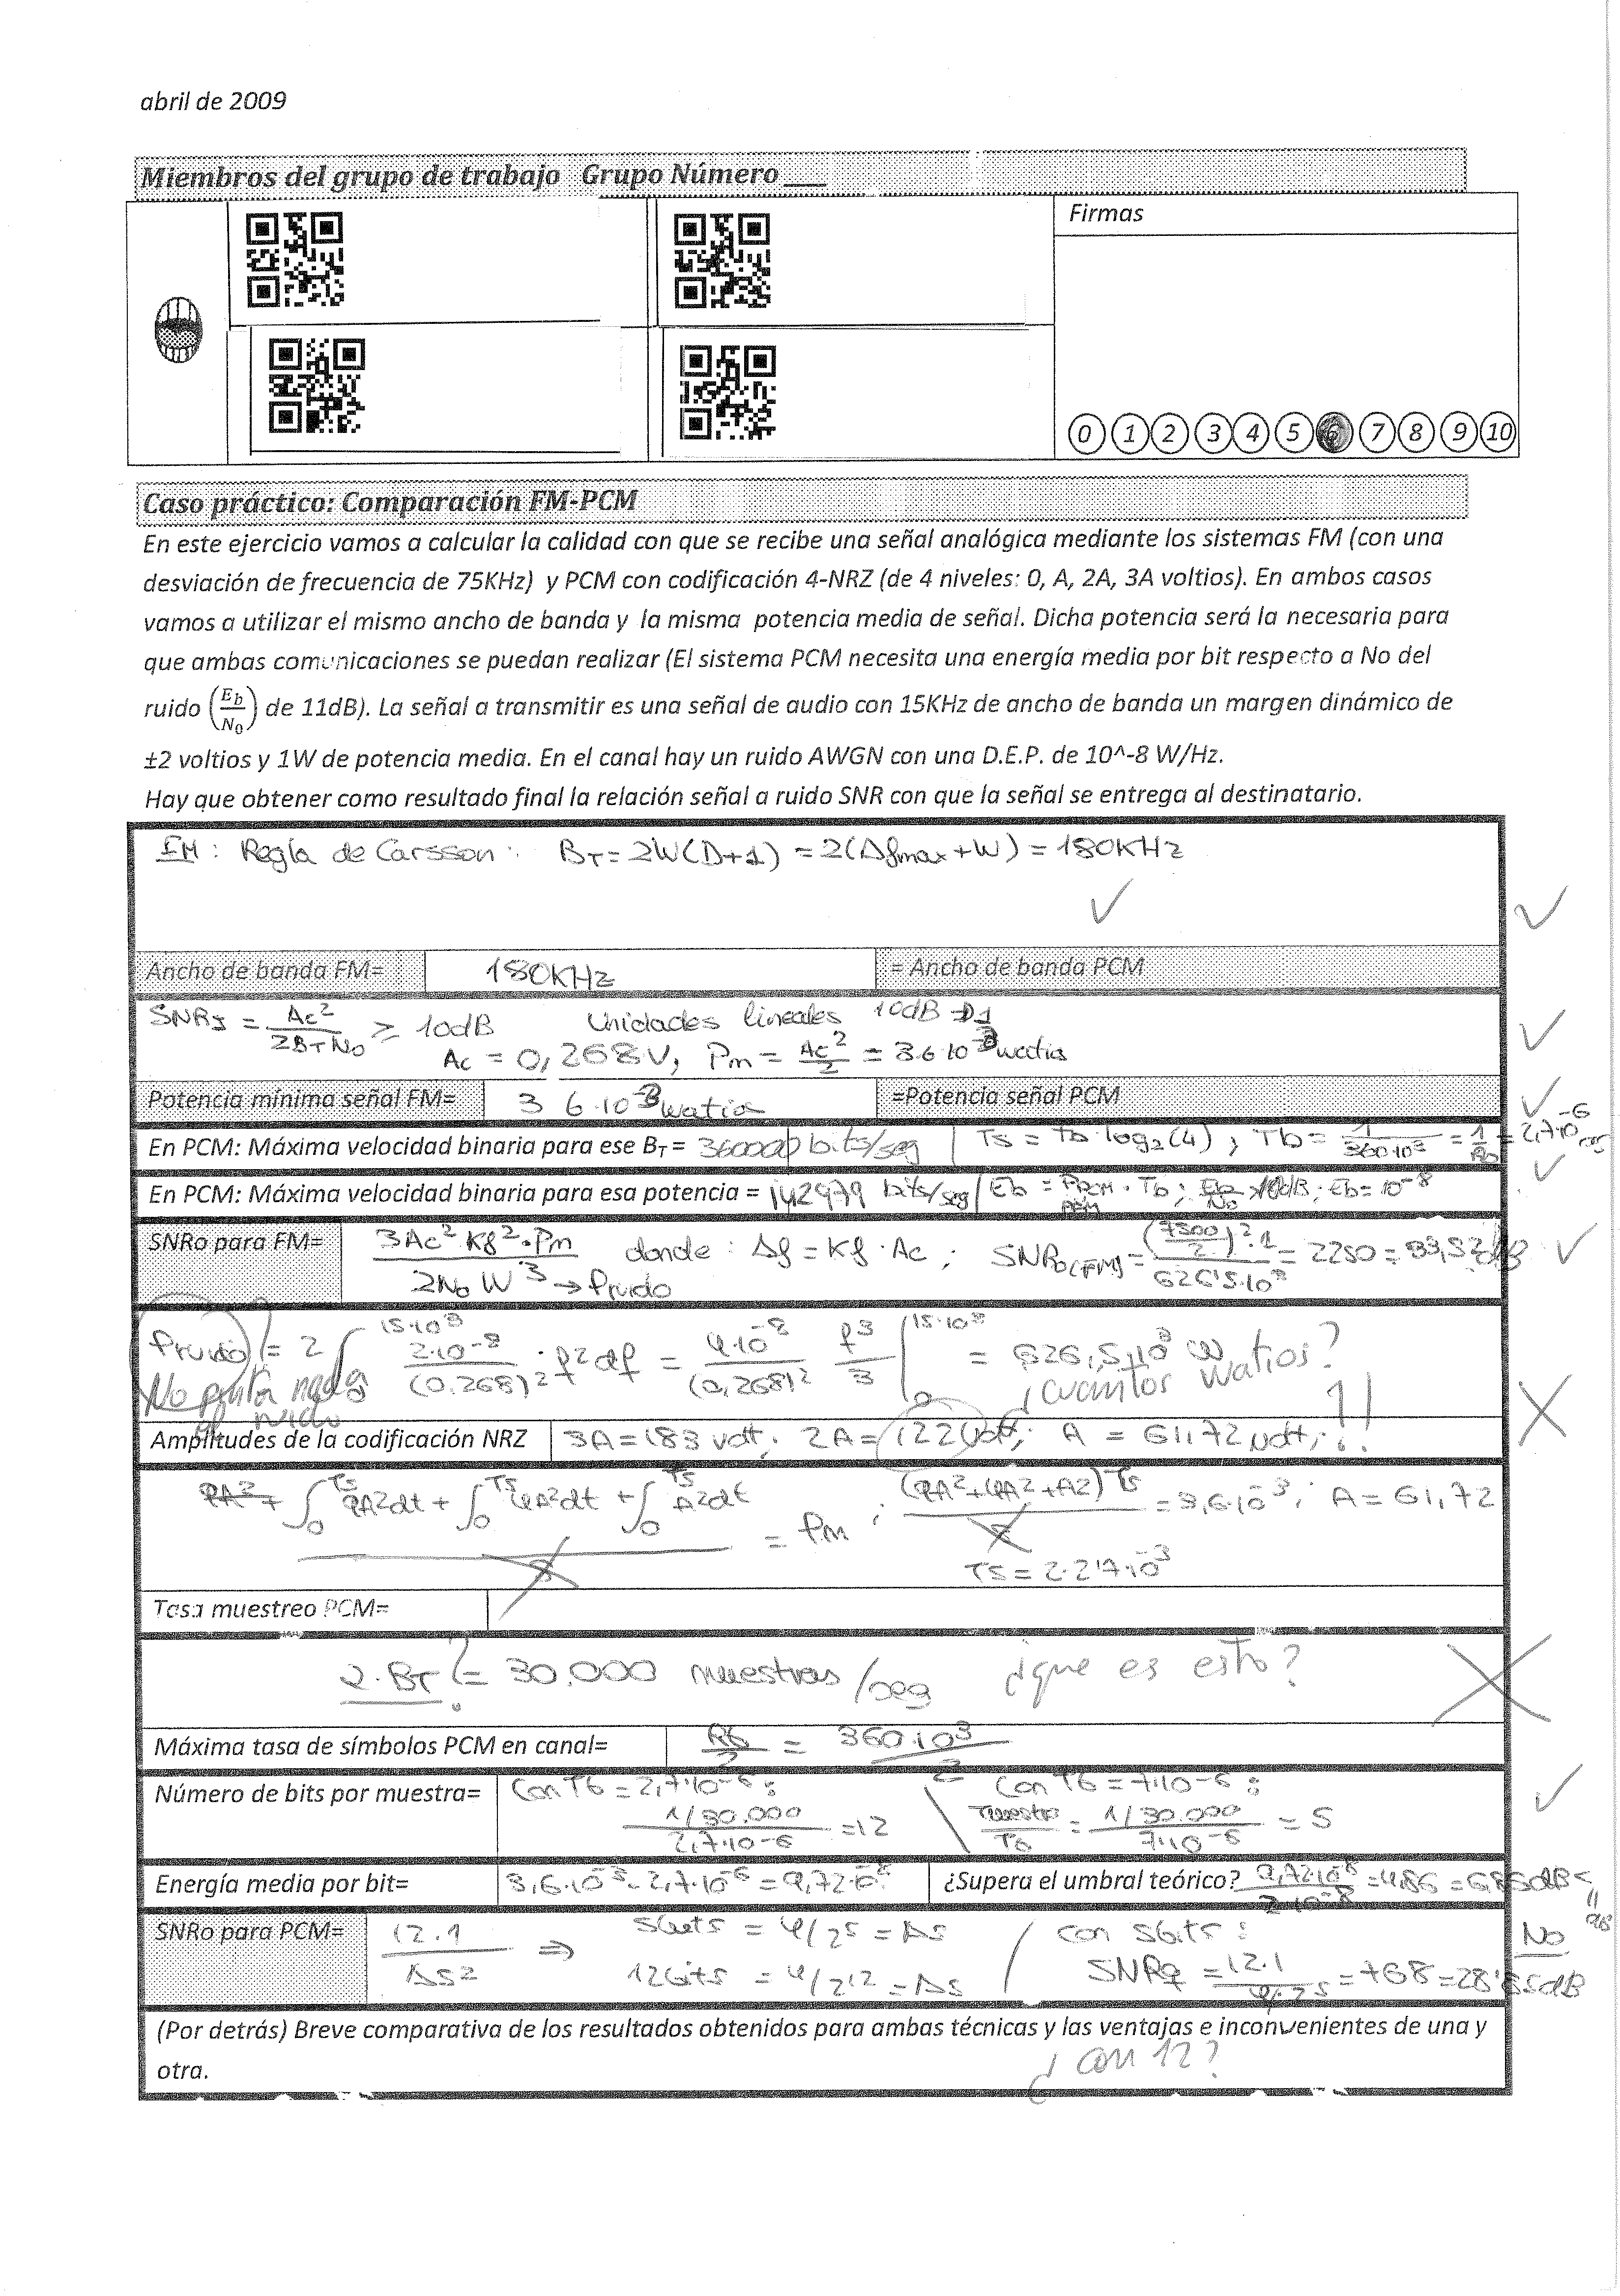 abril de 2009
Miembros del grupo de trabajo Grupo Número ___
Firmas
0 1 2 3 4 5 6 7 8 9 10
Caso práctico: Comparación FM-PCM
En este ejercicio vamos a calcular la calidad con que se recibe una señal analógica mediante los sistemas FM (con una
desviación de frecuencia de 75KHz) y PCM con codificación 4-NRZ (de 4 niveles: 0, A, 2A, 3A voltios). En ambos casos
vamos a utilizar el mismo ancho de banda y la misma potencia media de señal. Dicha potencia será la necesaria para
que ambas comunicaciones se puedan realizar (El sistema PCM necesita una energía media por bit respecto a No del
ruido (Eb/N0) de 11dB). La señal a transmitir es una señal de audio con 15KHz de ancho de banda un margen dinámico de
±2 voltios y 1W de potencia media. En el canal hay un ruido AWGN con una D.E.P. de 10^-8 W/Hz.
Hay que obtener como resultado final la relación señal a ruido SNR con que la señal se entrega al destinatario.
FM: Regla de Carsson: BT = 2W(D+1) = 2(Δfmax+W) = 180KHz
Ancho de banda FM= 180KHz = Ancho de banda PCM
= Ac²/2BTNo ≥ 10dB Unidades lineales 10dB
Ac = 0,268V, Pm = Ac²/2 = 3.6 10^-3 watios
Potencia mínima señal FM= 3 6·10^-3 watios =Potencia señal PCM
En PCM: Máxima velocidad binaria para ese BT = 360000 bits/seg Ts = Tb log2(4); Tb = 1/360·10³ = 1/Rb = 2,7·10^-6
En PCM: Máxima velocidad binaria para esa potencia = 142979 bits/seg Eb = PPCM · Tb; Eb/No Eb = 10^-8
SNRo para FM= 3Ac²·Kf²·Pm / 2No W³ → Pruido donde: Δf = Kf·Ac; SNRo(FM) = (7500/2)²·1 / 626'5·10³ = 2250 = 33,52dB
Pruido = 2 ∫ 15·10³ 2·10^-8/(0,268)² · f² df = 4·10^-8/(0,268)² f³/3 | 15·10³ 0 = 626,5·10³ W
No pinta nada
el ruido
¿cuántos watios?
Amplitudes de la codificación NRZ 3A = 183 volt; 2A = 122 volt; A = 61,72 volt;
∫0 Ts 9A²dt + ∫0 Ts 4A²dt + ∫0 Ts A²dt = Pm; (9A²+4A²+A²) Ts = 3,6·10^-3; A = 61,72
Ts = 2.217·10^-3
Tasa muestreo PCM=
2·BT = 30.000 muestras/seg ¿que es esto?
Máxima tasa de símbolos PCM en canal= Rb/2 = 360·10³/2
Número de bits por muestra= Con Tb = 2,7·10^-6: 1/30.000 / 2,7·10^-6 = 12 Con Tb = 7·10^-6: Tmuestro/Tb = 1/30.000 / 7·10^-6 = 5
Energía media por bit= 3,6·10^-3 · 2,7·10^-6 = 9,72·10^-8 ¿Supera el umbral teórico? 9,72·10^-8 / 2·10^-8 = 4,86 = 6,86dB <
No
SNRo para PCM= 12·1/Δs² ⇒ 5bits = 4/2^5 = Δs
12bits = 4/2^12 = Δs
con 5bits:
SNRq = 12·1 / 4/2^5 = 768 = 28'85dB
(Por detrás) Breve comparativa de los resultados obtenidos para ambas técnicas y las ventajas e inconvenientes de una y
otra.
¿con 12?